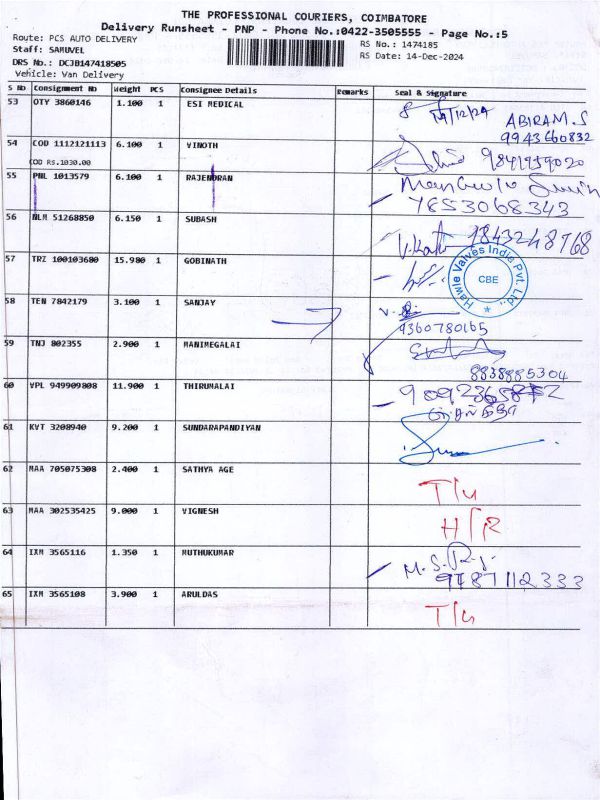 THE PROFESSIONAL COURIERS, COIMBATORE
Delivery Runsheet - PNP - Phone No.:0422-3505555 - Page No.:5
Route: PCS AUTO DELIVERY
RS No.: 1474185
Staff: SAMUVEL
RS Date: 14-Dec-2024
DRS No.: DCJB147418505
Vehicle: Van Delivery
S No Consignment No Weight PCS Consignee Details Remarks Seal & Signature
53 OTY 3860146 1.100 1 ESI MEDICAL 14/12/24 ABIRAM.S
9943660832
54 COD 1112121113 6.100 1 VINOTH 9841959020
COD RS.1030.00
55 PNL 1013579 6.100 1 RAJENDRAN
7853068343
56 NLM 51268850 6.150 1 SUBASH
57 TRZ 100103680 15.980 1 GOBINATH
Hawle Valves India Pvt. Ltd.,
CBE
58 TEN 7842179 3.100 1 SANJAY
9360780165
59 TNJ 802355 2.900 1 MANIMEGALAI
8838885304
60 VPL 949909808 11.900 1 THIRUMALAI
61 KVT 3208940 9.200 1 SUNDARAPANDIYAN
62 MAA 705075308 2.400 1 SATHYA AGE
63 MAA 302535425 9.000 1 VIGNESH
64 IXM 3565116 1.350 1 MUTHUKUMAR
9787112333
65 IXM 3565108 3.900 1 ARULDAS